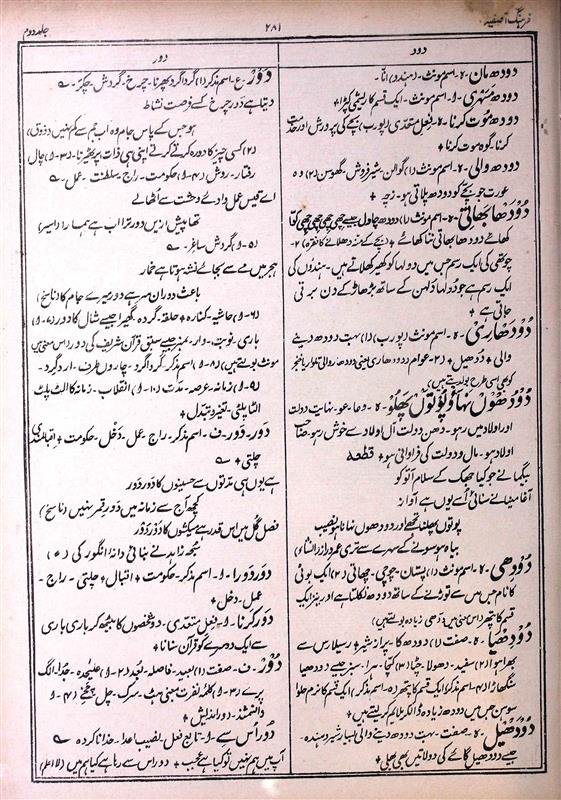 فرہنگ آصفیہ
۲۸۱
جلد دوم
دود
دودھ مان - ہ - اسم مونث - (ہندو) انّا -
دودھ مَسَہری - ا - اسم مونث - ایک قسم کا ریشمی کپڑا +
دودھ مُوت کرنا - ہ - فعل متعدی (پورب) بچے کی پرورش اور خدمت
کرنا - گوہ موت کرنا +
دودھ والی - ہ - اسم مونث (۱) گوالن - شیر فروش - گھوسن (۲) وہ
عورت جو بچے کو دودھ پلاتی ہو - زچہ +
دُودھا بھاتی - ہ - اسم مونث (۱) دودھ چاول
چوتھی کی ایک رسم جس میں دولہا کو کھیر کھلاتے ہیں - ہندوں کی
ایک رسم ہے جو دُولہا دُلہن کے ساتھ بڑھار کے دن برتی
جاتی ہے +
دُودھاری - ہ - اسم مونث (پورب) (۱) بہت دودھ دینے
والی + دُدھیل + (۲ - عوام) دو دھاری یعنی دو دھار والی تلوار یا خنجر
کو بھی اسی طرح بولتے ہیں)
دُودھوں نہاؤ پُوتوں پھلو - ہ - دعا - عو - نہایت دولت
اور اولاد میں رہو - دھن دولت آل اولاد سے خوش رہو - صاحب
اولاد ہو - مال و دولت کی فراوانی ہو + قطعہ
بیگما نے جو کیا جھک کے سلام آتو کو
آغا مینا نے سنائی اُسے یوں بے آواز
پوتوں پھلنا تجھے اور دودھوں نہانا ہو نصیب
بیاہ ہو سونے کے سہرے سے تری عمر دراز (انشا)
دُودھی - ہ - اسم مونث (۱) پستان - چوچی - چھاتی (۲) ایک بوٹی
کا نام جس میں سے توڑنے کے ساتھ دودھ نکلتا ہے اور نیز ایک
قسم کا پتھر (اس معنی میں دُدھی زیادہ بولتے ہیں)
دُودھیا - ہ - صفت (۱) دودھ کا - پُر از شیر + رسیلا رس سے
بھرا ہوا (۲) سفید - دھولا - چٹّا (۳) کچا - ہرا - سبز جیسے دودھیا
سنگھاڑا (۴ - اسم مذکر) ایک قسم کا پتھر (۵ - اسم مذکر) ایک قسم کا نرم حلوا
سوہن جس میں دودھ زیادہ ڈالکر ملائم کر لیتے ہیں +
دُودھیل - ہ - صفت - بہت دودھ دینے والی - بسیار شیر دہندہ -
جیسے دودھیل گائے کی دو لاتیں بھی بھلی +
دور
دَوْر - ع - اسم مذکر (۱) گردا گرد پھرنا - چرخ - گردش - چکّر - ؎
دیتا ہے دورِ چرخ کسے فرصت نشاط
ہو جس کے پاس جام وہ اب جم سے کم نہیں (ذوق)
(۲) کسی چیز کا دورہ کرتے کرتے اپنی ہی ذات پر ٹھیرنا - (۳ - ا) چال
رفتار - روش (۴ - ا) حکومت - راج - سلطنت - عمل - ؎
اے قیس عمل وادئے وحشت سے اُٹھا لے
تھا پیش ازیں دور ترا اب ہے ہمارا (اسیر)
(۵ - ا) گردش ساغر - ؎
ہجر میں مے سے بجائے نشہ ہوتا ہے خمار
باعث دوران سر ہے دور میرے جام کا (ناسخ)
(۶ - ا) حاشیہ - کنارہ + حلقہ - گردہ - گھیرا جیسے شال کا دور (۷ - ا)
باری - نوبت - وار - نمبر جیسے سبق قرآن شریف کی دور (اس معنی میں
مونث بولتے ہیں) (۸ - ا) اسم مذکر - گرداگرد - چاروں طرف - ارد گرد -
(۹ - ا) زمانہ - عرصہ - مدّت (۱۰ - ا) انقلاب - زمانہ کا اُلٹ پلٹ
الٹا پلٹی - تغیّر و تبدل +
دَور - دَور - ف - اسم مذکر - راج - عمل - دَخل - حکومت + اقبالمندی
چلتی + ؎
ہے یوں ہی مدتوں سے حسینوں کا دَور دَور
کچھ آج سے زمانہ میں دَورِ قمر نہیں (ناسخ)
فصل گل میں اس قدر ہے میکشوں کا دَور دَور
سبحہ زاہد نے بنائی دانۂ انگور کی (؞)
دَور دَورا - ا - اسم مذکر - حکومت + اقبال + چلتی - راج -
عمل - دخل +
دَور کرنا - ا - فعل متعدی - دو شخصوں کا بیٹھ کر باری باری
سے ایک دوسرے کو قرآن سنانا +
دُوْر - ف - صفت (۱) بعید - فاصلہ - بُعد (۲ - ا) علیحدہ - جُدا - الگ
پرے (۳ - ا) کلمۂ نفرت یعنی ہٹ - سرک - چل + (۴ - ا)
دانشمند - دور اندیش +
دُور اس سے - ا - تابع فعل - نصیب اعدا - خدا نا کردہ ؎
آپ میں ہم نہیں تو کیا ہے عجب + دور اس سے رہا ہے کیا ہم میں (لا اعلم)